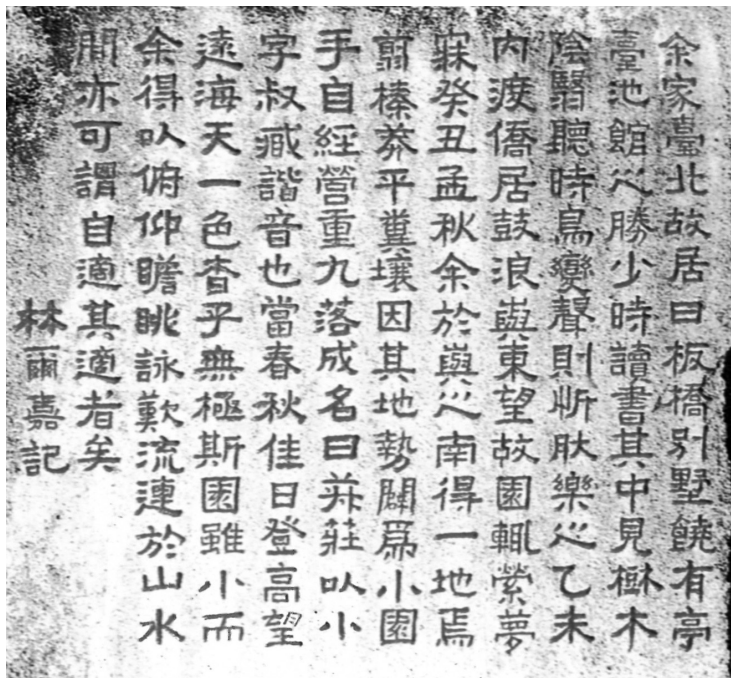 余家臺北故居曰板橋別墅饒有亭
臺池館之勝少時讀書其中見樹木
陰翳聽時鳥變聲則忻肰樂之乙未
內渡僑居鼓浪嶼東望故園輒縈夢
寐癸丑孟秋余於嶼之南得一地焉
翦榛莽平糞壤因其地勢闢爲小園
手自經營重九落成名曰菽莊以小
字叔臧諧音也當春秋佳日登高望
遠海天一色杳乎無極斯園雖小而
余得以俯仰瞻眺詠歎流連於山水
間亦可謂自適其適者矣
林爾嘉記